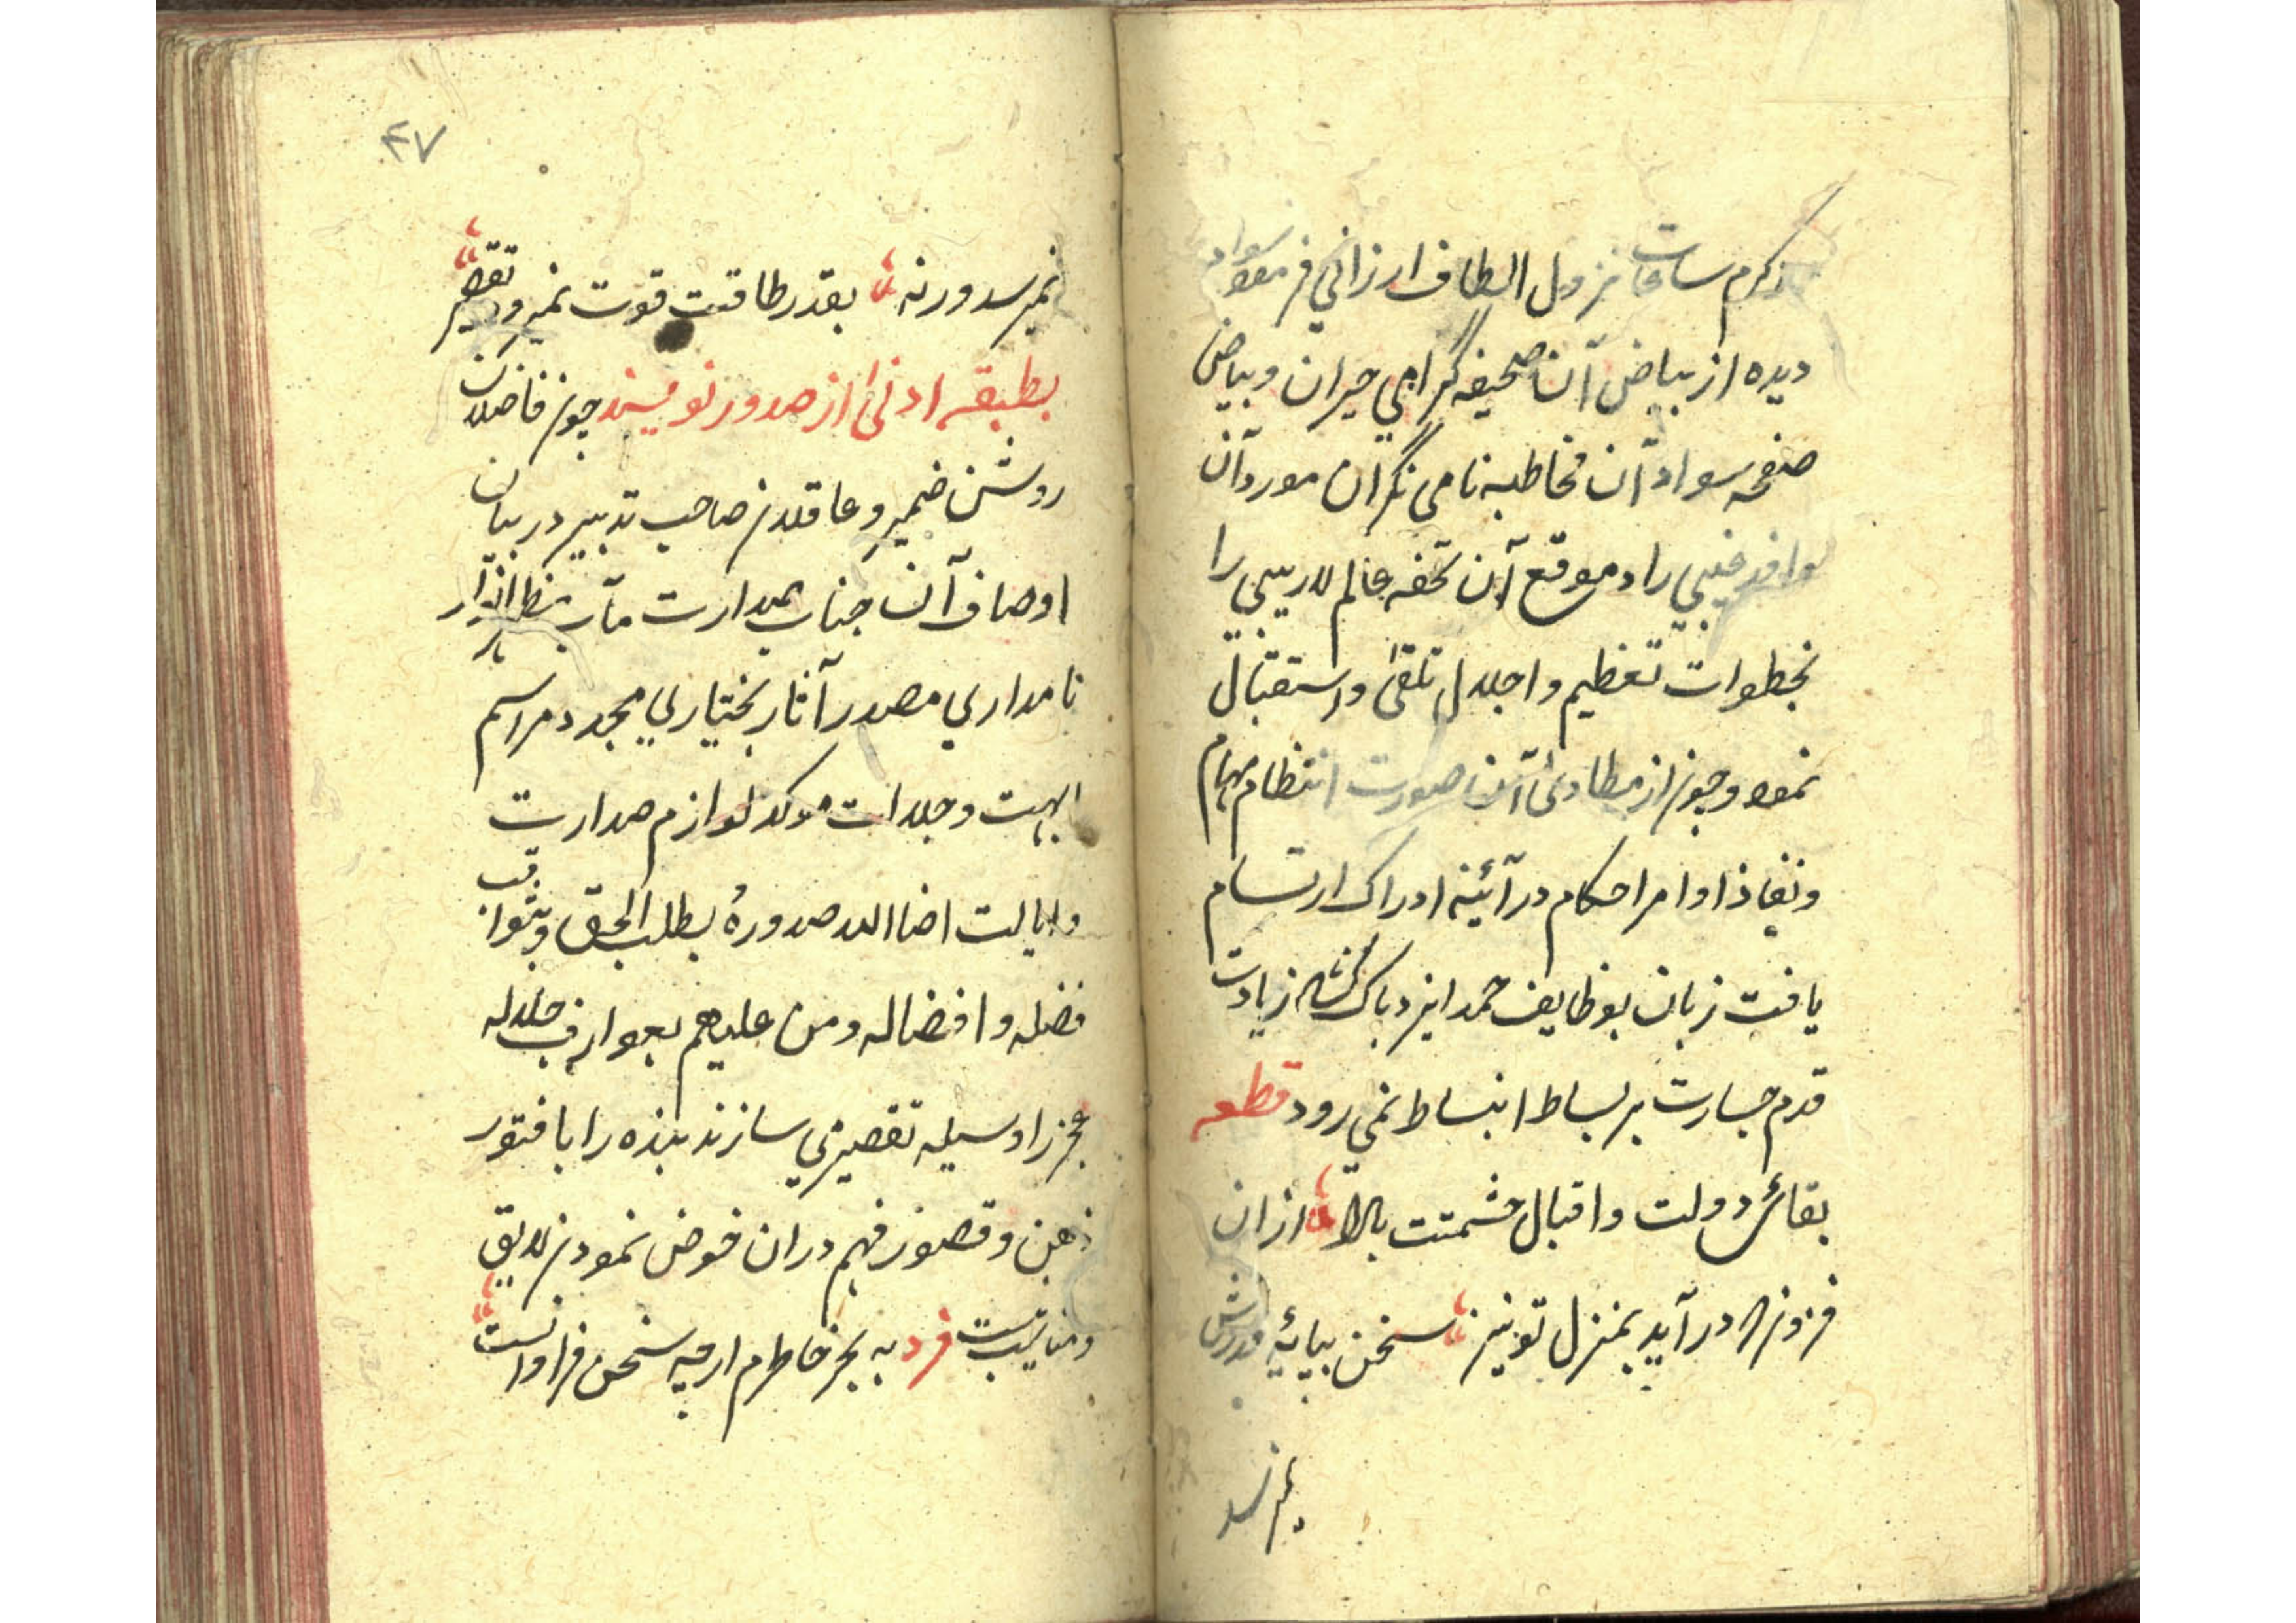 ذکرم ساخت نزول الطاف ارزانی فرمود سواد
دیده از بیاض آن صحیفه گرامی حیران و بیاض
صفحه سواد آن مخاطبه نامی نگران مورد آن
وافد غیبی را و موقع آن تحفه عالم لاریبی را
بخطوات تعظیم و اجلال تلقی و استقبال
نمود و چون از مطاوی آن صورت انتظام مهام
و نفاذ اوامر احکام در آئینه ادراک ارتسام
یافت زبان بوظایف حمد ایزد پاک گشاد زیادت
قدم جسارت بر بساط انبساط نمی رود قطعه
بقائش دولت و اقبال حشمتت بالا از ان
فزون در آید بمنزل تو نیز سخن بپایه قدرش
نمیرسد
۴۷
نمیرسد ورنه بقدر طاقت قوت نمیرود تقصیر
بطبقه ادنی از صدور نویسند چون فاضلان
روشن ضمیر و عاقلان صاحب تدبیر در بیان
اوصاف آن جناب صدارت مآب منظر انوار
نامداری مصدر آثار بختیاری مجدد مراسم
ابهت و جلالت موکد لوازم صدارت
و ایالت اضاالله صدوره بطلب الحق و ثواقب
فضله و افضاله ومن علیهم بعوارف جلاله
عجز را وسیله تقصیر می سازند بنده را با فتور
ذهن و قصور فهم در ان خوض نمودن لایق
و مناسب نیست فرد به بحر خاطرم ارچه سخن فراوانست